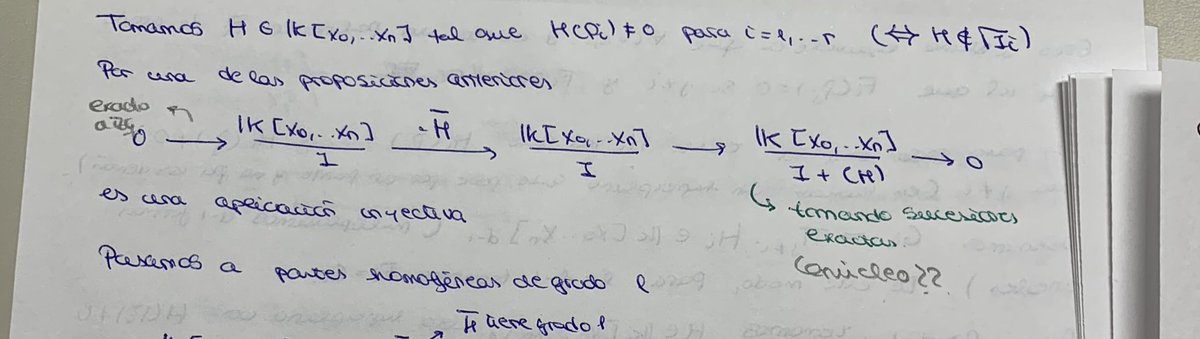 Tomamos H ∈ IK[x0,..xn] tal que H(Pi) ≠ 0 para i=1,..r (⇔ H ∉ √Ii)
Por una de las proposiciones anteriores
exacto
a izq
0 → IK[x0,..xn] / I → ·H̅ IK[x0,..xn] / I → IK[x0,..xn] / I + (H) → 0
es una aplicación inyectiva
↳ tomando sucesiones
exactas.
Conúcleo??
Pasamos a partes homogéneas de grado l
H̅ tiene grado 1